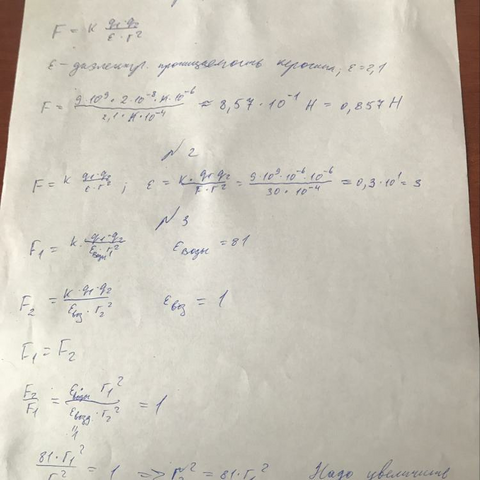 F = K q₁·q₂ / ε·r²
ε – диэлектр. проницаемость керосина, ε=2,1
F = 9·10⁹·2·10⁻⁸·4·10⁻⁶ / 2,1·4·10⁻⁴ ≈ 8,57·10⁻¹ Н = 0,857 Н
№2
F = K q₁·q₂ / ε·r² ; ε = K·q₁·q₂ / F·r² = 9·10⁹·10⁻⁶·10⁻⁶ / 30·10⁻⁴ = 0,3·10¹ = 3
№3
F₁ = K·q₁·q₂ / εводы·r₁² εводы = 81
F₂ = K·q₁·q₂ / εвоз·r₂² εвоз = 1
F₁ = F₂
F₂/F₁ = εводы·r₁² / εвозд·r₂² = 1
"1
81·r₁² / r₂² = 1 => r₂² = 81·r₁² Надо увеличить